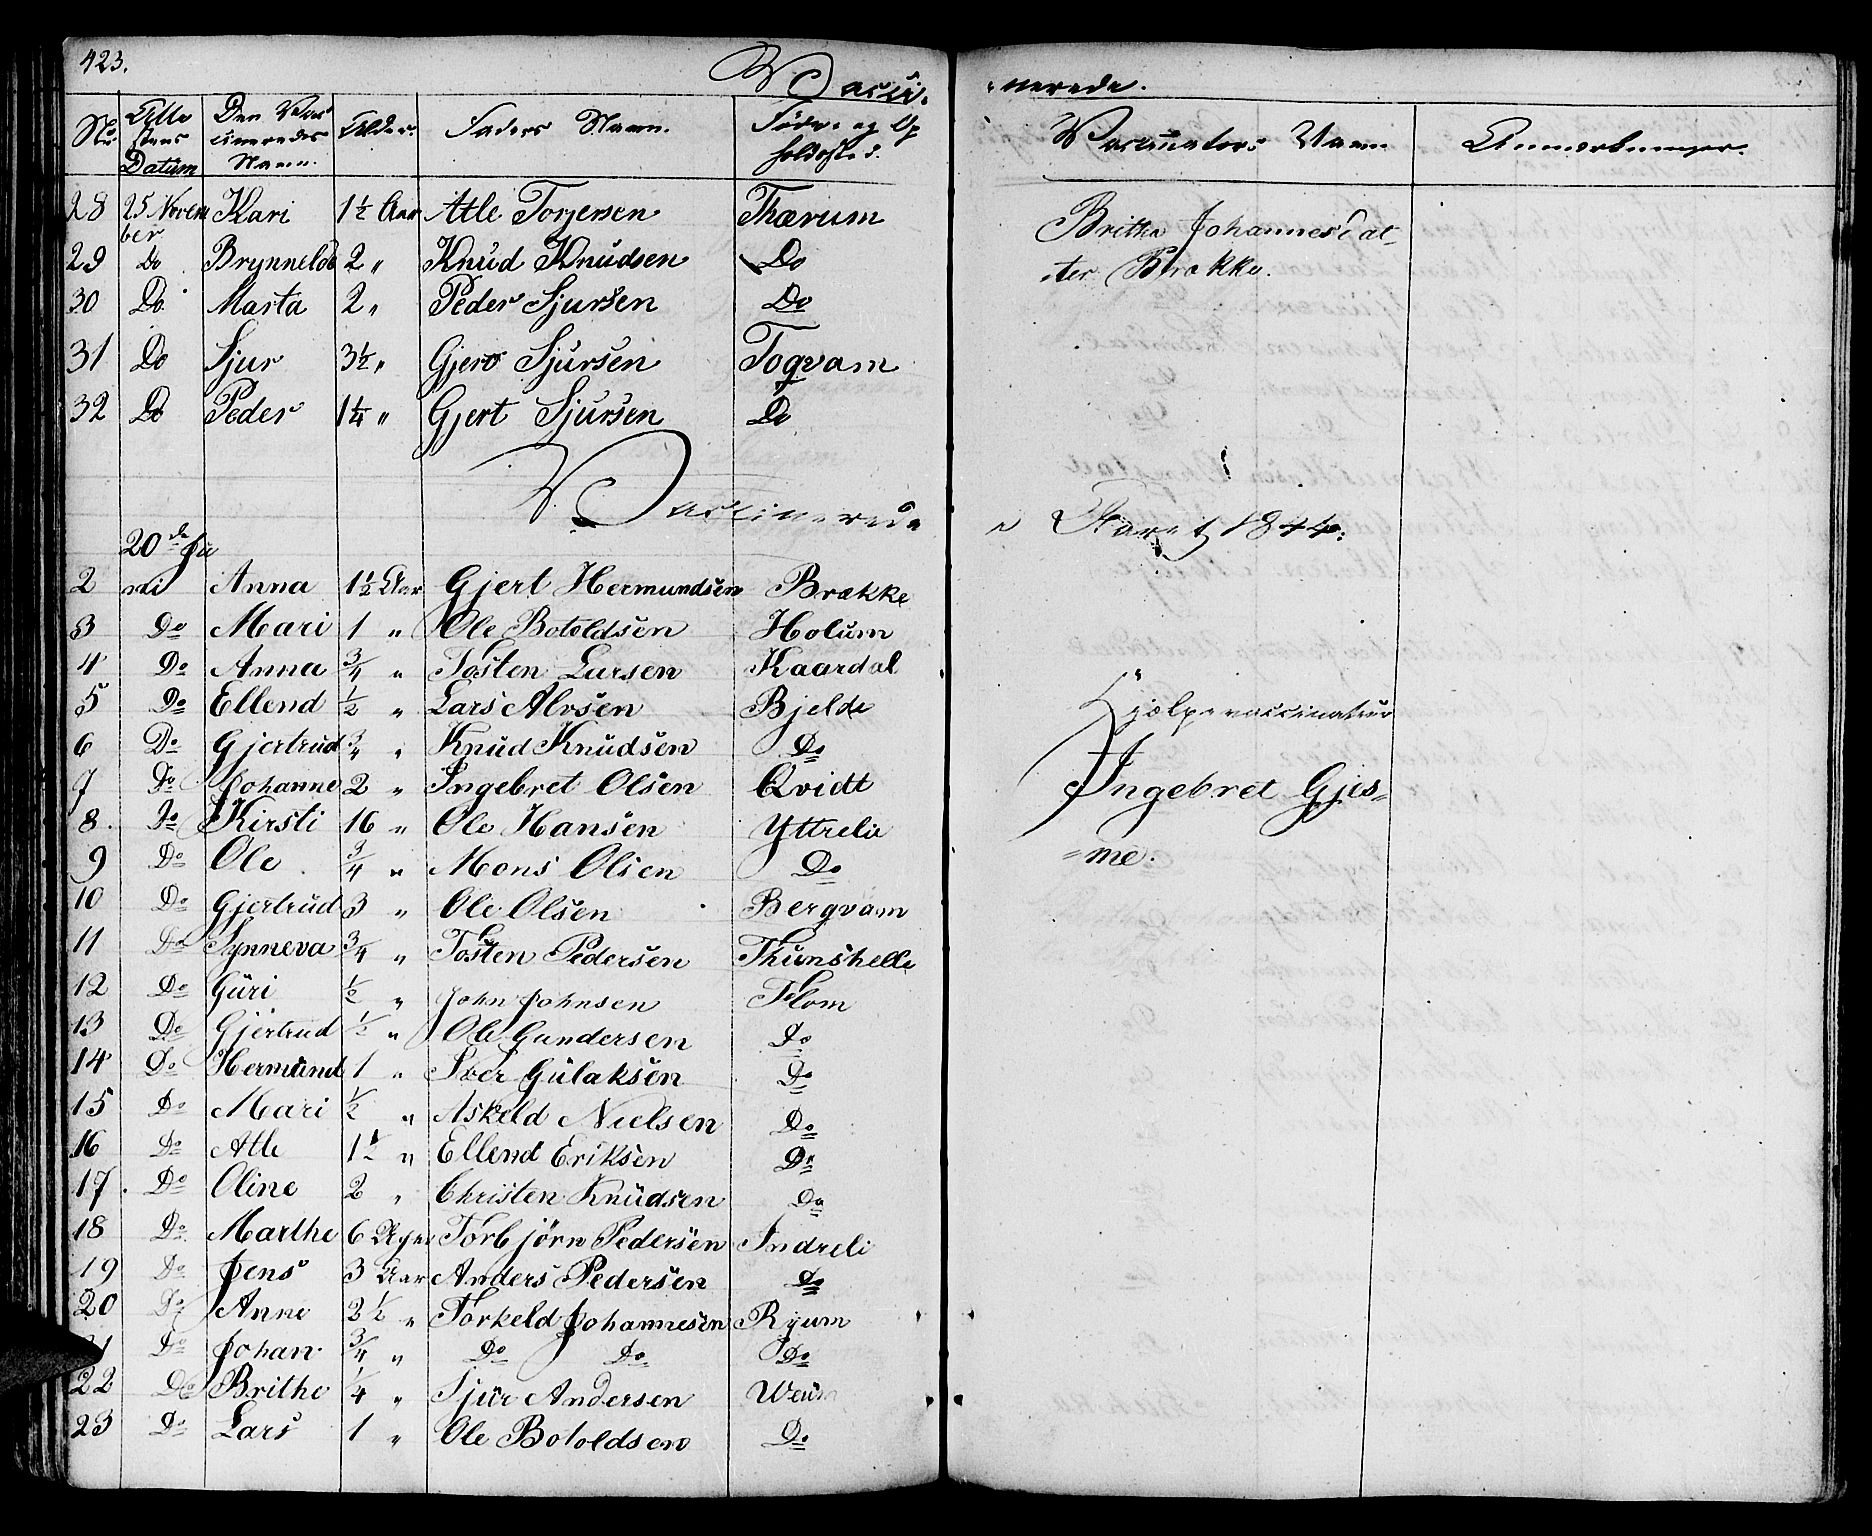 423.
Vacci- nerede.
No. Atte stens Datum | Den Vac cineredes Navn. | Alder. | Faders Navn. | Føde- og Op holdssted. | Vaccinators Navn | Anmærkninger.
28 25 Novem ber Kari 1½ Aar Atle Torjersen Thærum
Britha Johannesdat-
ter Brække.
29 Do Brynnelde 2 „ Knud Knudsen Do
30 Do. Marta 2 „ Peder Sjursen Do
31 Do Sjur 3½ „ Gjero Sjursen Toqvam
32 Do Peder 1¼ „ Gjert Sjursen Do
Vaccinerede
Aaret 1844.
20de Ju
2 ni Anna 1½ Aar Gjert Hermundsen Brække
3 Do Mari 1 „ Ole Botoldsen Holum
4 Do Anna ¾ „ Tosten Larsen Kaardal
5 Do Ellend ½ „ Lars Alvsen Bjelde
Hjælpevaccinateur
6 Do Gjertrud ¾ „ Knud Knudsen Do
7 Do Johanne 2 „ Ingebret Olsen Qvidt
Ingebret Gjes=
8. Do Kirsti 16 „ Ole Hansen Yttrelie
=me.
9 Do Ole ¾ „ Mons Olsen Do
10 Do Gjertrud 3 „ Ole Olsen Bergvam
11 Do Synneva ¾ „ Tosten Pedersen Thunshelle
12 Do Guri ½ „ John Johnsen Flom
13 Do Gjertrud ½ „ Ole Gundersen Do
14 Do Hermund 1 „ Iver Gulaksen Do
15 Do Mari ½ „ Askeld Nielsen Do
16 Do Atle 1½ „ Ellend Eriksen Do
17. Do Oline 2 „ Christen Knudsen Do
18 Do Marthe 6 Uger Torbjörn Pedersen Indreli
19 Do Jens 3 Aar Anders Pedersen Do
20 Do Anne 2½ „ Torkeld Johannesen Ryum
21 Do Johan ¾ „ Do Do Do
22 Do Brithe ¼ „ Sjur Andersen Weum
23 Do Lars 1 „ Ole Botoldsen Do